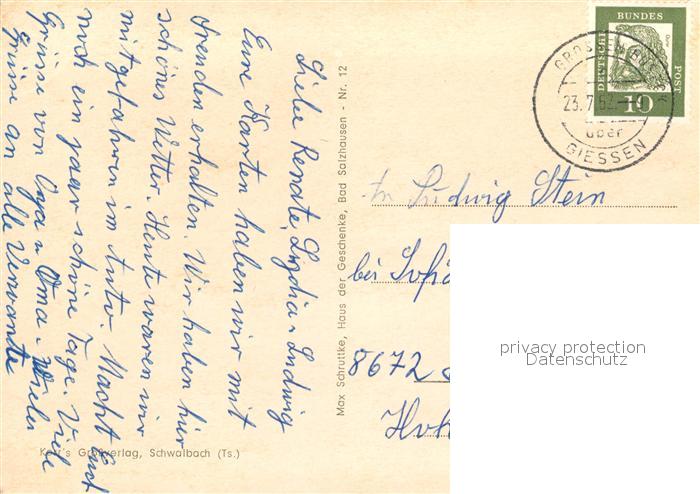 Liebe Renate, Lydia u. Ludwig
Eure Karten haben wir mit
Freuden erhalten. Wir haben hier
schönes Wetter. Heute waren wir
mitgefahren im Auto. Macht Euch
noch ein paar schöne Tage. Viele
Grüsse von Opa u. Oma. Vieler
Grüsse an alle Verwandte
Max Schruttke, Haus der Geschenke, Bad Salzhausen - Nr. 12
Grossverlag, Schwalbach (Ts.)
DEUTSCHE
BUNDES
POST
10
23.7.62
über
GIESSEN
Ludwig Stein
bei
8672
privacy protection
Datenschutz